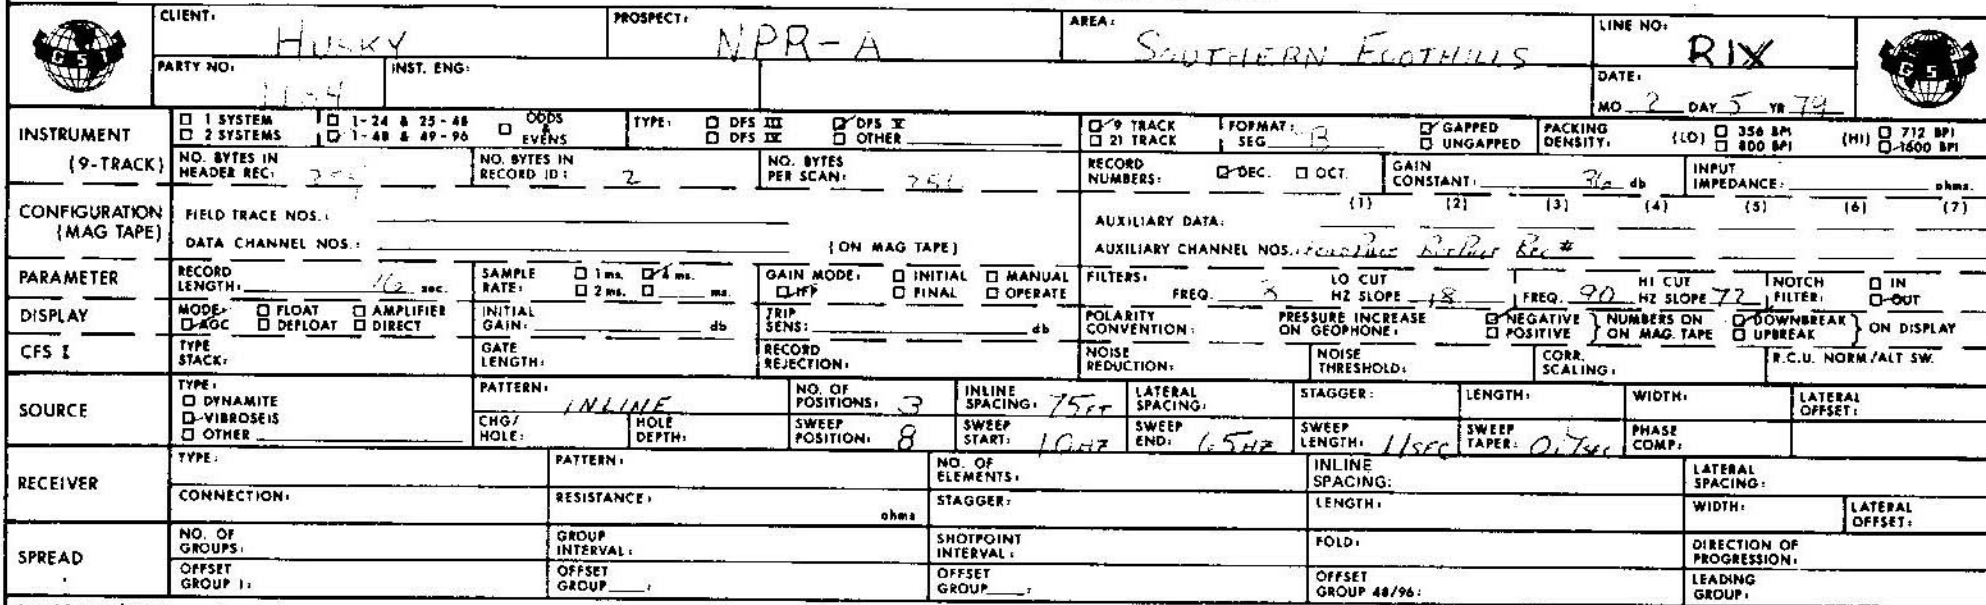 CLIENT: HUSKY PROSPECT: NPR-A AREA: SOUTHERN FOOTHILLS LINE NO: RIX
GSI GSI
PARTY NO: INST. ENG: DATE:
MO 2 DAY 5 YR 79
INSTRUMENT (9-TRACK)
1 SYSTEM 1-24 & 25-48 ODDS & EVENS TYPE: DFS III DFS V 9 TRACK FORMAT: SEG B GAPPED PACKING DENSITY: (LO) 356 BPI (HI) 712 BPI
2 SYSTEMS 1-48 & 49-96 DFS IV OTHER 21 TRACK UNGAPPED 800 BPI 1600 BPI
NO. BYTES IN HEADER REC: NO. BYTES IN RECORD ID: 2 NO. BYTES PER SCAN: RECORD NUMBERS: DEC. OCT. GAIN CONSTANT: 36 db INPUT IMPEDANCE: ohms.
CONFIGURATION (MAG TAPE)
FIELD TRACE NOS.: AUXILIARY DATA: (1) (2) (3) (4) (5) (6) (7)
DATA CHANNEL NOS.: (ON MAG TAPE) AUXILIARY CHANNEL NOS. Rec #
PARAMETER RECORD LENGTH: 16 sec. SAMPLE RATE: 1 ms. 4 ms. 2 ms. ms. GAIN MODE: INITIAL MANUAL IFP FINAL OPERATE FILTERS: FREQ. 8 LO CUT HZ SLOPE 18 FREQ. 90 HI CUT HZ SLOPE 72 NOTCH FILTER: IN OUT
DISPLAY MODE: FLOAT AMPLIFIER AGC DEFLOAT DIRECT INITIAL GAIN: db TRIP SENS: db POLARITY CONVENTION: PRESSURE INCREASE ON GEOPHONE: NEGATIVE POSITIVE NUMBERS ON MAG. TAPE DOWNBREAK UPBREAK ON DISPLAY
CFS I TYPE STACK: GATE LENGTH: RECORD REJECTION: NOISE REDUCTION: NOISE THRESHOLD: CORR. SCALING: R.C.U. NORM/ALT SW.
SOURCE TYPE: PATTERN: INLINE NO. OF POSITIONS: 3 INLINE SPACING: 75 FT LATERAL SPACING: STAGGER: LENGTH: WIDTH: LATERAL OFFSET:
DYNAMITE
VIBROSEIS
OTHER
CHG/HOLE: HOLE DEPTH: SWEEP POSITION: 8 SWEEP START: 10 HZ SWEEP END: 65 HZ SWEEP LENGTH: 11 SEC SWEEP TAPER: 0.7 sec PHASE COMP:
RECEIVER TYPE: PATTERN: NO. OF ELEMENTS: INLINE SPACING: LATERAL SPACING:
CONNECTION: RESISTANCE: ohms STAGGER: LENGTH: WIDTH: LATERAL OFFSET:
SPREAD NO. OF GROUPS: GROUP INTERVAL: SHOTPOINT INTERVAL: FOLD: DIRECTION OF PROGRESSION:
OFFSET GROUP 1: OFFSET GROUP : OFFSET GROUP : OFFSET GROUP 48/96: LEADING GROUP: